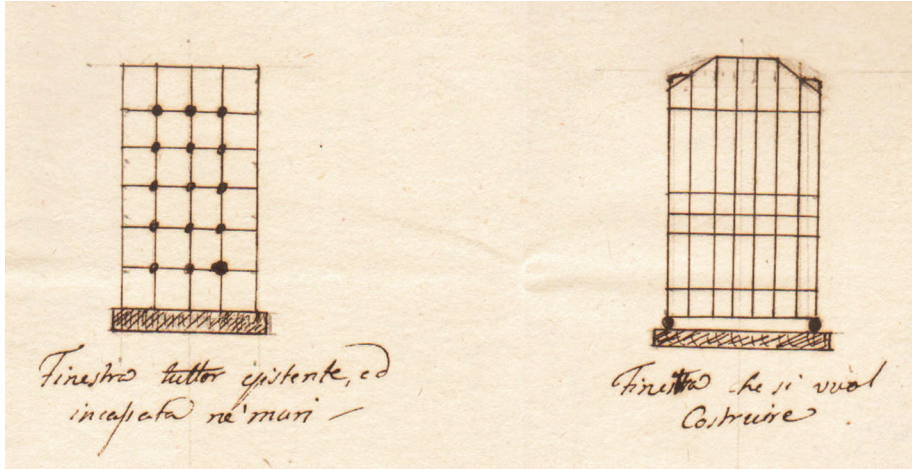 Finestra tuttor esistente, ed
incassata ne' muri –
Finestra che si vuol
Costruire